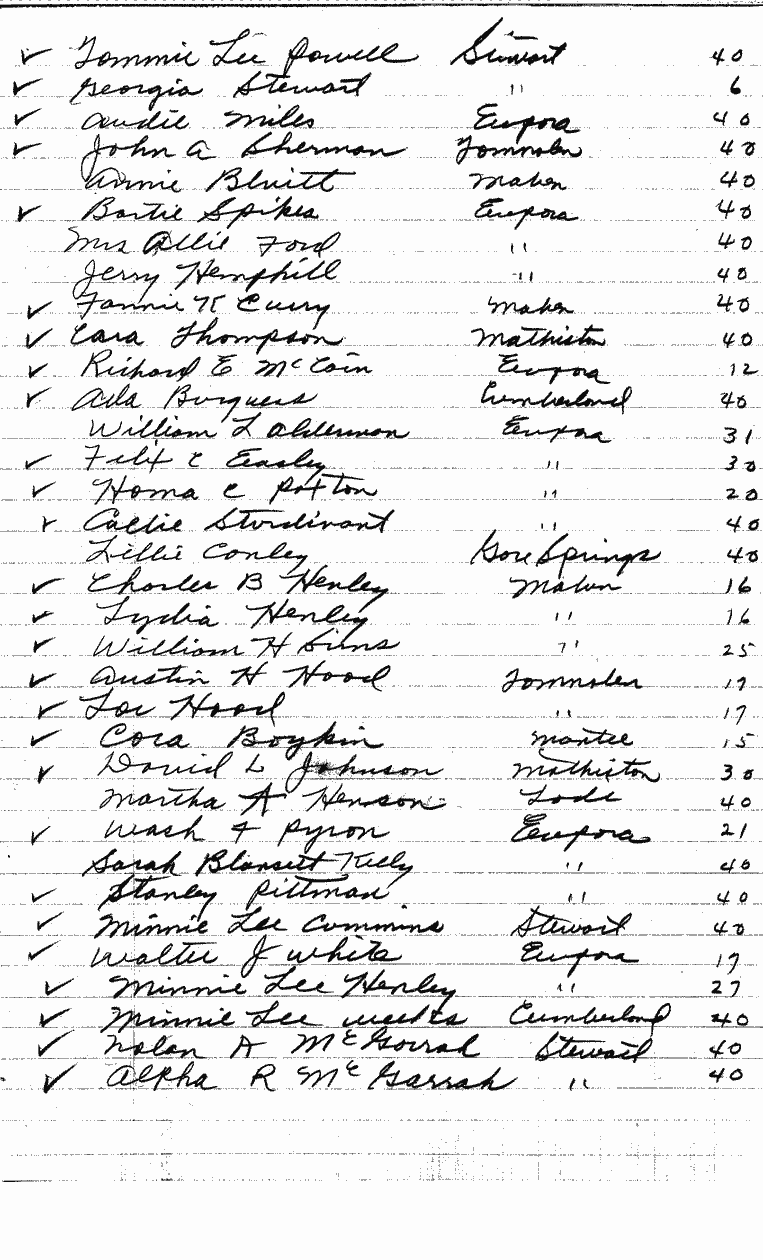 ✓ Tommie Lee Powell Stewart 40
✓ Georgia Stewart " 6
✓ Audie Miles Eupora 40
✓ John A Sherman Tomnolen 40
Annie Bluitt Maben 40
✓ Bartie Spikes Eupora 40
Mrs Allie Ford " 40
Jerry Hemphill " 40
✓ Fannie K Curry Maben 40
✓ Cara Thompson Mathiston 40
✓ Richard E McCain Eupora 12
✓ Ada Burguess Cumberland 40
William L Alderman Eupora 31
✓ Felix C Easley " 30
✓ Homa C Patton " 20
✓ Callie Sturdivant " 40
Lillie Conley Gore Springs 40
✓ Charles B Henley Maben 16
✓ Lydia Henley " 16
✓ William H Sims " 25
✓ Austin H Hood Tomnolen 17
✓ Hood " 17
✓ Cora Boykin Mantee 15
✓ David L Johnson Mathiston 30
Martha A Henson Lodi 40
✓ Wash F Pyron Eupora 21
Sarah Blansett Kelly " 40
✓ Stanley Pittman " 40
✓ Minnie Lee Cummins Stewart 40
✓ Walter J White Eupora 17
✓ Minnie Lee Henley " 27
✓ Minnie Lee Weeks Cumberland 40
✓ Nolan A McGarrah Stewart 40
✓ Alpha R McGarrah " 40